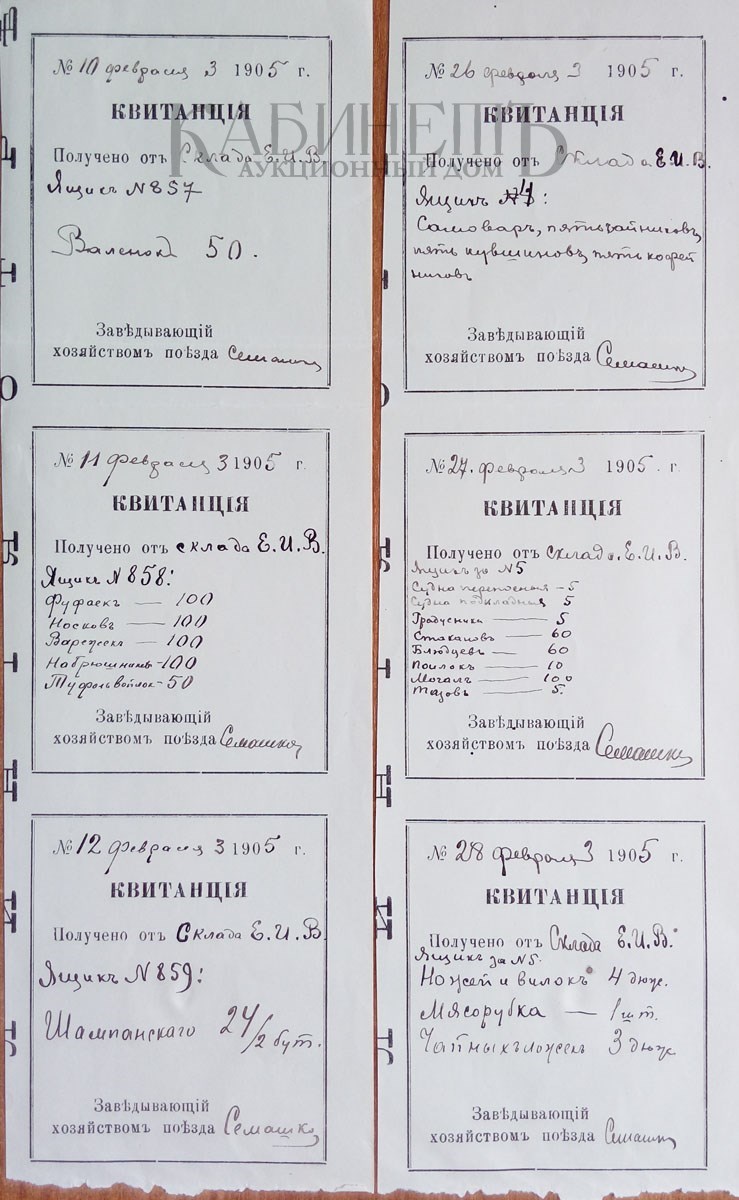 № 10 февраля 3 1905 г.
КВИТАНЦІЯ
Получено отъ Склада Е. И. В.
Ящикъ N 857
Валенокъ 50.
Завѣдывающій
хозяйствомъ поѣзда Семашко
№ 11 февраля 3 1905 г.
КВИТАНЦІЯ
Получено отъ склада Е. И. В.
Ящикъ N 858:
Фуфаекъ — 100
Носковъ — 100
Варежекъ — 100
Набрюшниковъ - 100
Туфель войлок - 50
Завѣдывающій
хозяйствомъ поѣзда Семашко
№ 12 февраля 3 1905 г.
КВИТАНЦІЯ
Получено отъ Склада Е. И. В.
Ящикъ N 859:
Шампанскаго 24/2 бут.
Завѣдывающій
хозяйствомъ поѣзда Семашко
№ 26 февраля 3 1905 г.
КВИТАНЦІЯ
Получено отъ Склада Е. И. В.
Ящикъ 4:
Самоваръ, пять чайниковъ,
пять кувшиновъ, пять кофей
никовъ
Завѣдывающій
хозяйствомъ поѣзда Семашко
№ 27. февраля 3 1905. г.
КВИТАНЦІЯ
Получено отъ склада. Е. И. В.
Ящикъ за N 5
Судна переносныя - 5
Судна подкладныя 5
Градусники — 5
Стакановъ — 60
Блюдцевъ — 60
Поилокъ — 10
Мочалъ — 100
Тазовъ — 5.
Завѣдывающій
хозяйствомъ поѣзда Семашко
№ 28 февраля 3 1905 г.
КВИТАНЦІЯ
Получено отъ Склада Е. И. В.
Ящикъ за N 5.
Ножей и вилокъ 4 дюж.
Мясорубка — 1 шт.
Чайныхъ ложекъ 3 дюж
Завѣдывающій
хозяйствомъ поѣзда Семашко
КАБИНЕТЪ
АУКЦИОННЫЙ ДОМ